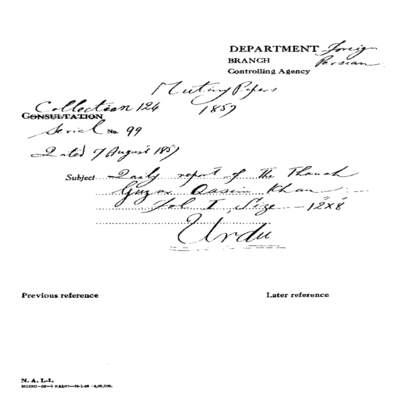 DEPARTMENT Foreign
BRANCH Persian
Controlling Agency
Mutiny Papers
Collection 124 1857
CONSULTATION
Serial No 99
Dated 7 August 1857
Subject Daily report of The Thanah
Guzar Qasim Khan
Fol 1 Size 12x8
Urdu
Previous reference Later reference
N. A. I.-3.